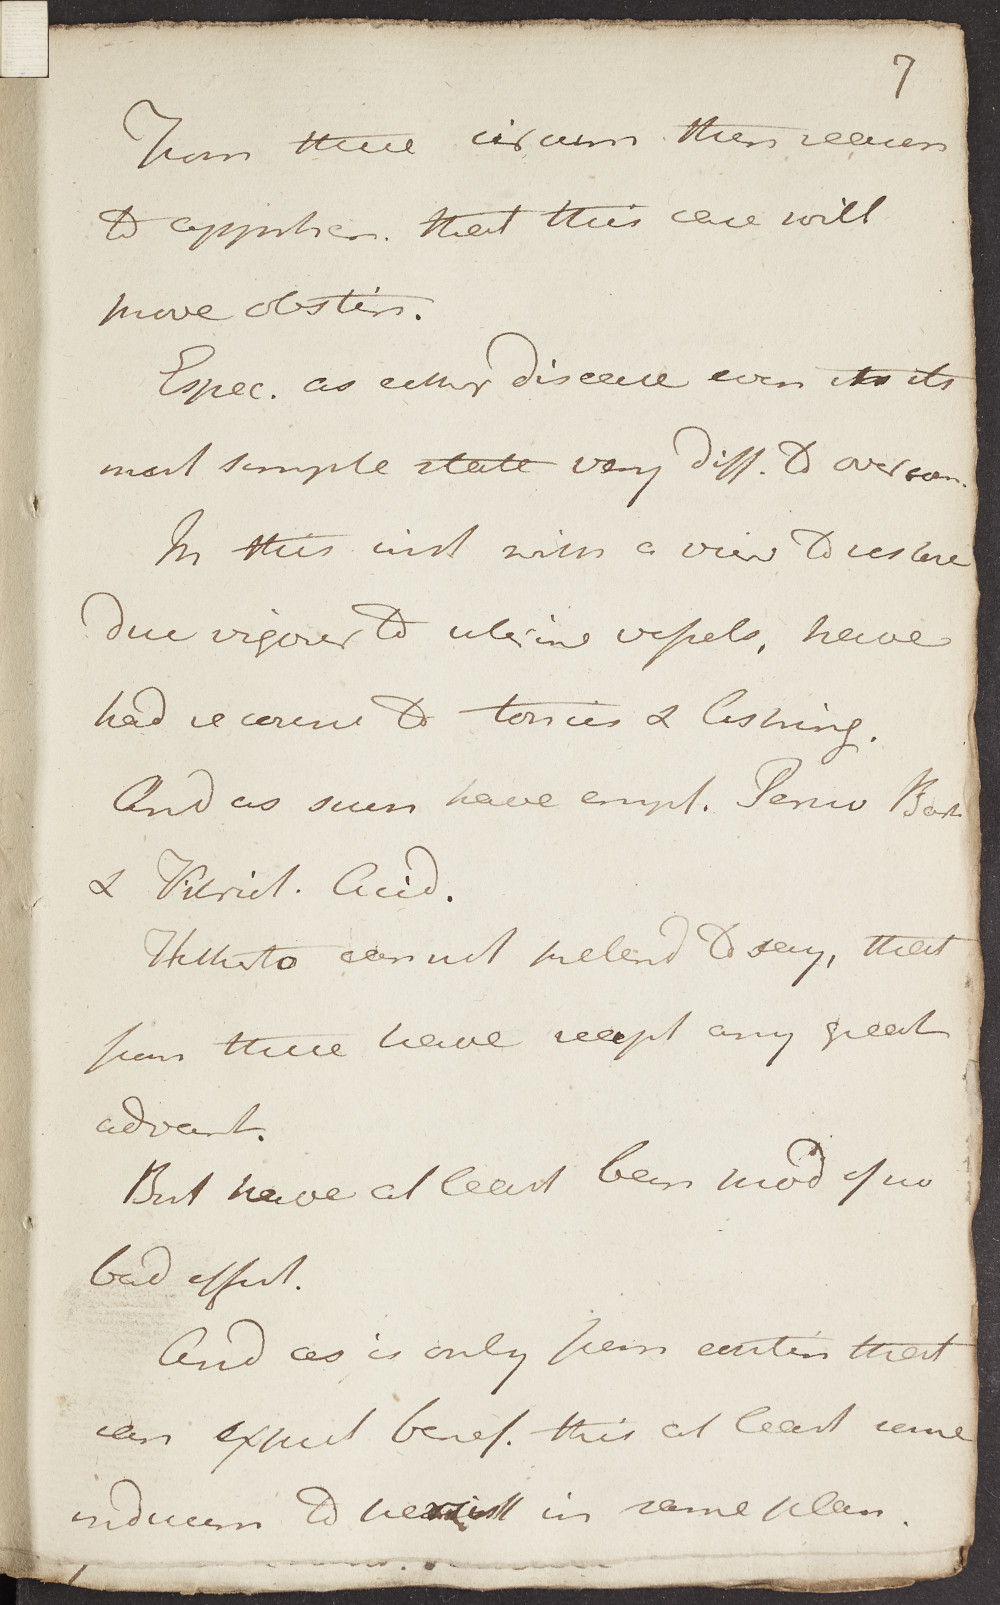 7
From these circum then reason
to apprehen. that this case will
prove obstin.
Espec. as either disease even its
most simple state very diff. to overcom.
In this inst with a view to restore
due vigour to uterine vessels, have
had recourse to tonics & astring.
And as such have empl. Peruv Bark
& Vitriol. Acid.
Hitherto cannot pretend to say, that
from these have reapt any great
advant.
But have at least been prod of no
bad effect.
And as is only from contin that
can expect benef. this at least some
inducem to persist in same plan.